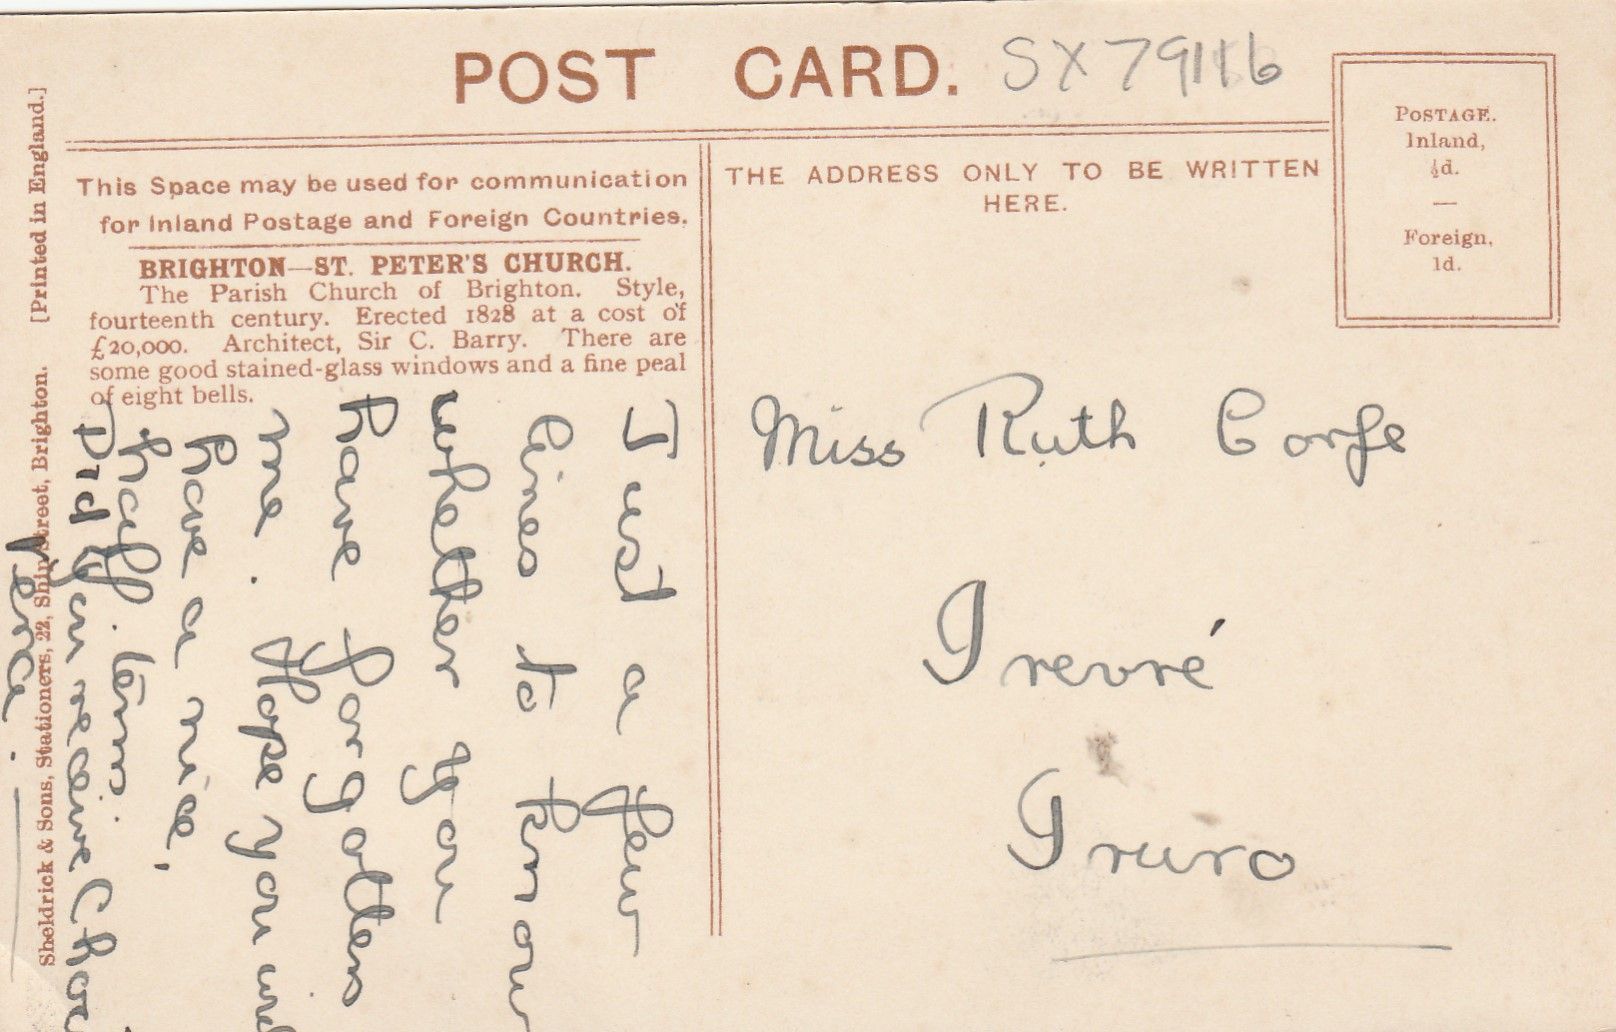 POST CARD.
SX79116
POSTAGE.
Inland,
½d.
—
Foreign,
1d.
This Space may be used for communication
for Inland Postage and Foreign Countries.
THE ADDRESS ONLY TO BE WRITTEN
HERE.
BRIGHTON—ST. PETER'S CHURCH.
The Parish Church of Brighton. Style,
fourteenth century. Erected 1828 at a cost of
£20,000. Architect, Sir C. Barry. There are
some good stained-glass windows and a fine peal
of eight bells.
Just a few
lines to know
whether you
have forgotten
me. Hope you
have a nice,
Did you receive
Miss Ruth Corfe
Trevré
Truro
Sheldrick & Sons, Stationers, 22, Ship Street, Brighton. [Printed in England.]